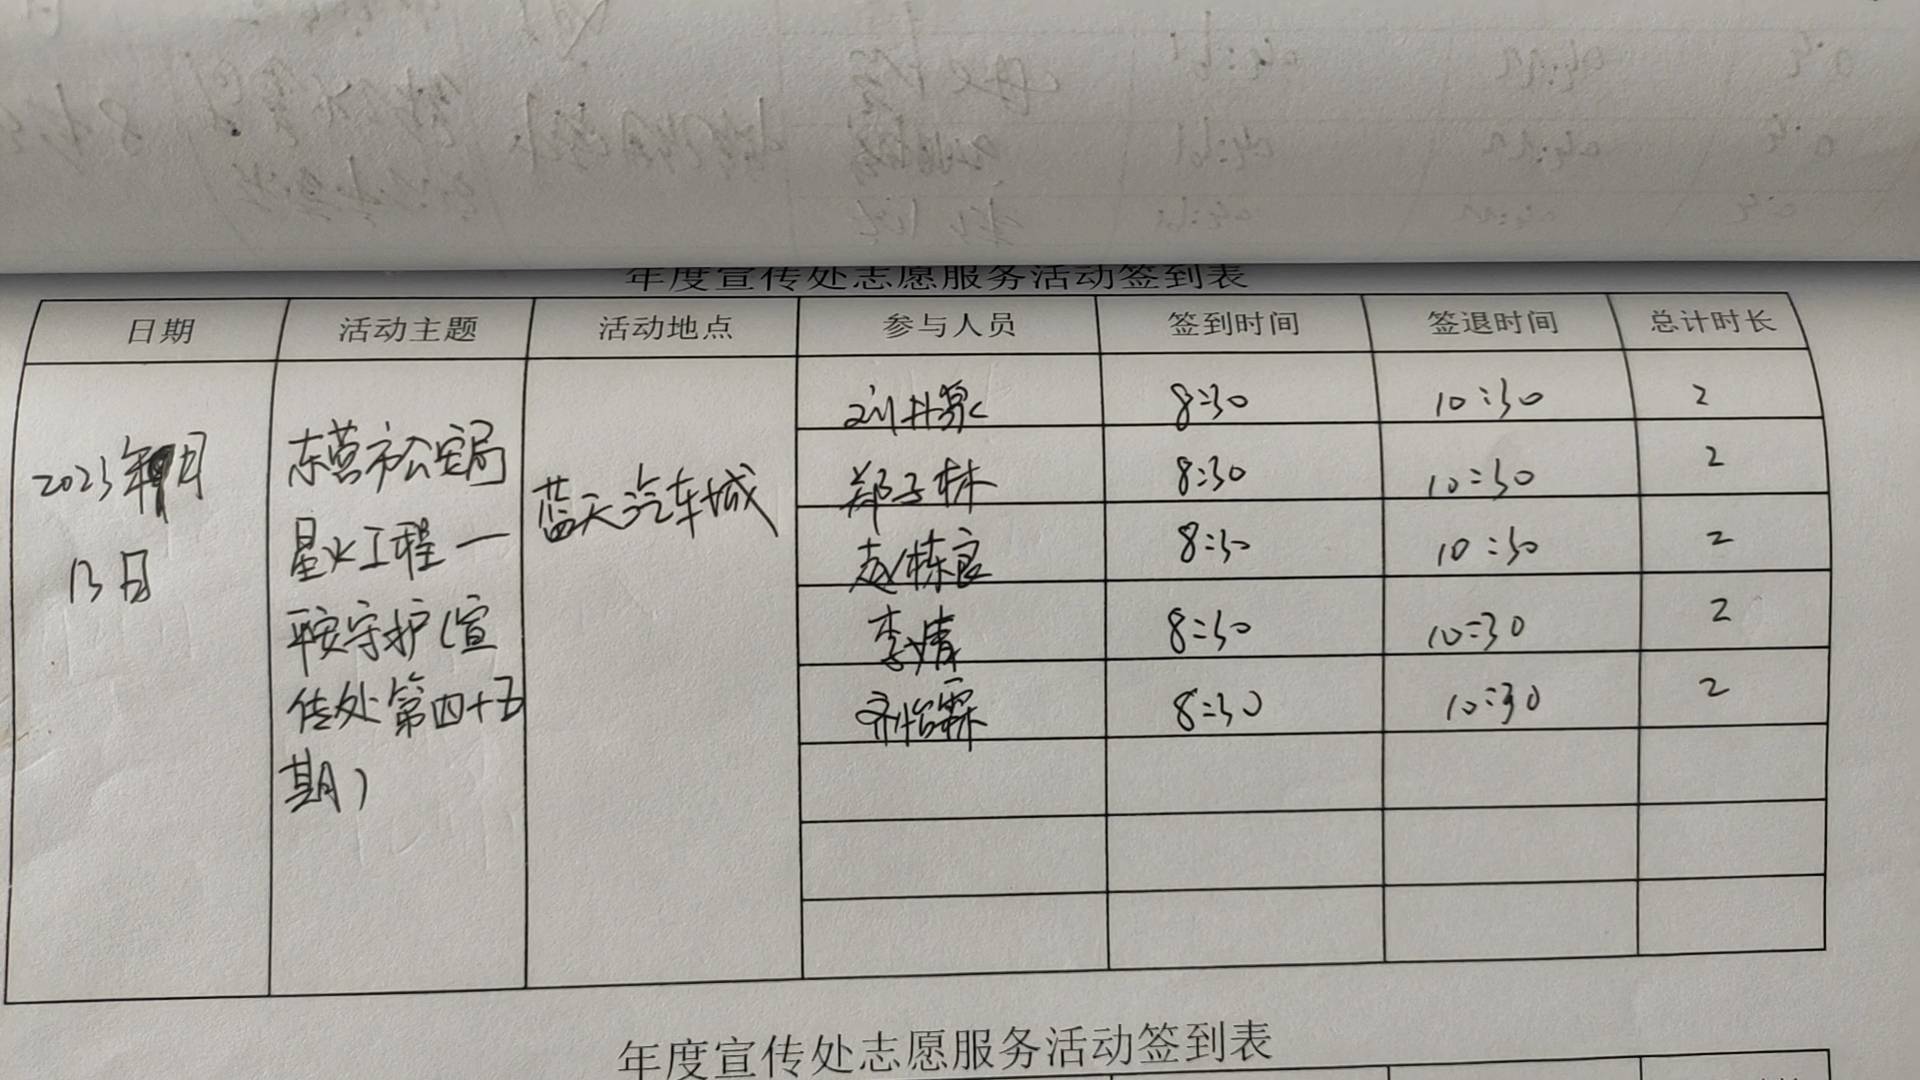 年度宣传处志愿服务活动签到表
日期 活动主题 活动地点 参与人员 签到时间 签退时间 总计时长
2023年9月
13日
东营市公安局
星火工程一
平安守护(宣
传处第四十五
期)
蓝天汽车城
刘井泉 8:30 10:30 2
郑子林 8:30 10:30 2
赵栋良 8:30 10:30 2
李婧 8:30 10:30 2
刘怡霖 8:30 10:30 2
年度宣传处志愿服务活动签到表